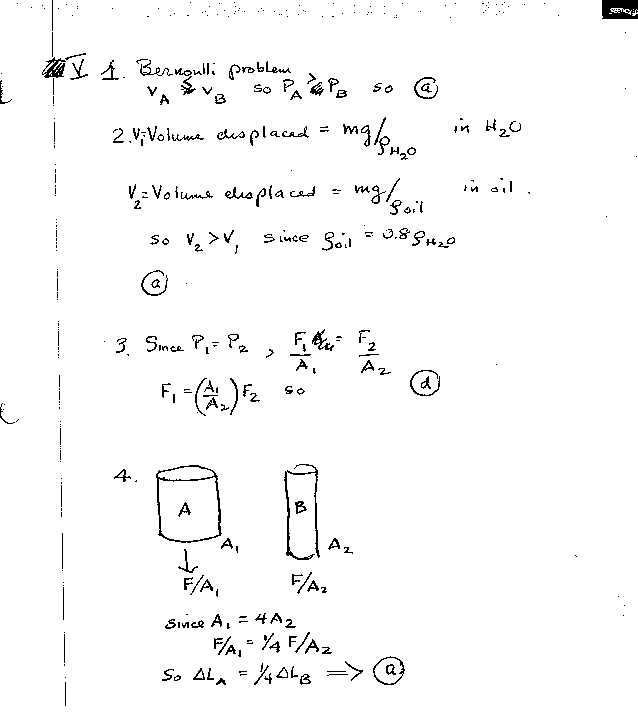 V 1. Bernoulli problem
V_A ≤ V_B so P_A ≥ P_B so (a)
2. V₁=Volume displaced = mg/ρ_H₂O in H₂O
V₂=Volume displaced = mg/ρ_oil in oil.
so V₂ > V₁ since ρ_oil = 0.8 ρ_H₂O
(a).
3. Since P₁ = P₂, F₁/A₁ = F₂/A₂
F₁ = (A₁/A₂) F₂ so (d)
4.
A B
A₁ A₂
F/A₁ F/A₂
Since A₁ = 4A₂
F/A₁ = 1/4 F/A₂
So ΔL_A = 1/4 ΔL_B ⇒ (a)